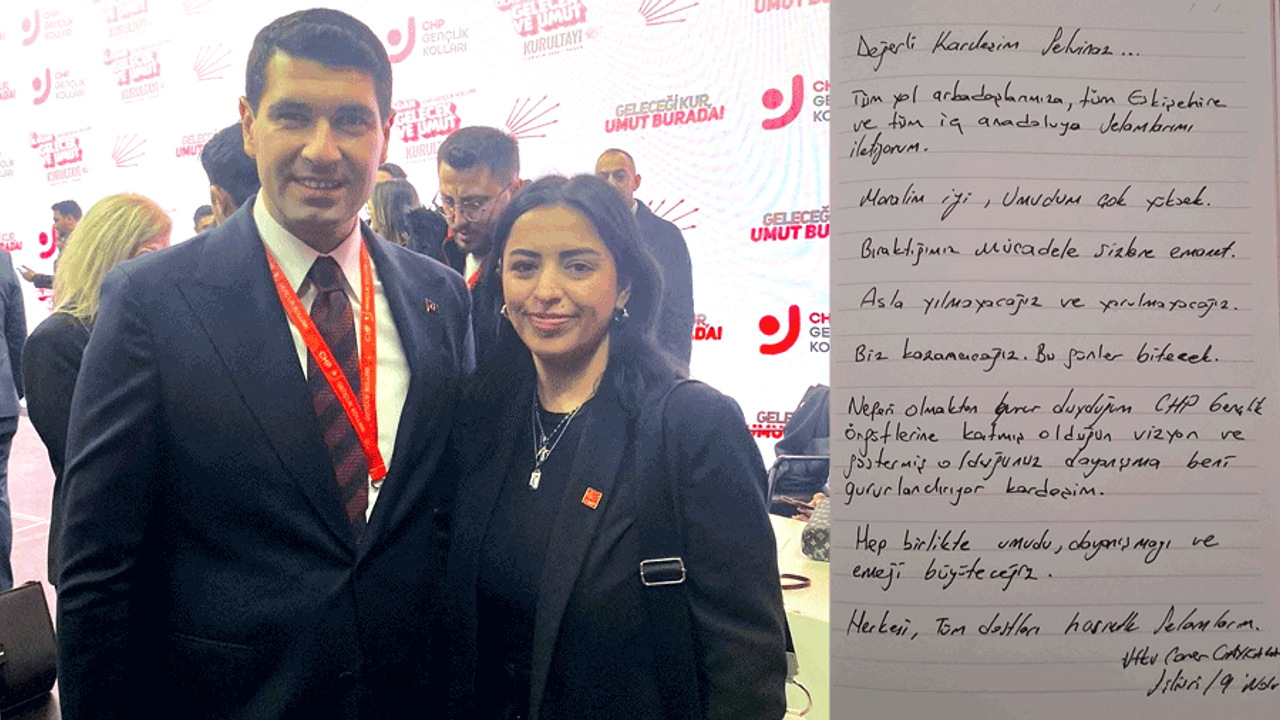 CHP
GENÇLİK
KOLLARI
GELECEK
VE UMUT
KURULTAYI
GELECEĞİ KUR,
UMUT BURADA!
CHP
GENÇLİK
KOLLARI
GELECEĞİ
UMUT BURADA!
Değerli Kardeşim Selvinaz...
Tüm yol arkadaşlarımıza, tüm Eskişehire
ve tüm iç anadoluya selamlarımı
iletiyorum.
Moralim iyi, Umudum çok yüksek.
Bıraktığımız mücadele sizlere emanet.
Asla yılmayacağız ve yorulmayacağız.
Biz kazanacağız. Bu günler bitecek.
Neferi olmaktan gurur duyduğum CHP Gençlik
örgütlerine katmış olduğun vizyon ve
göstermiş olduğunuz dayanışma beni
gururlandırıyor kardeşim.
Hep birlikte umudu, dayanışmayı ve
emeği büyüteceğiz.
Herkesi, Tüm dostları hasretle Selamlarım.
Utku Caner ÇAYKARA
Silivri / 9